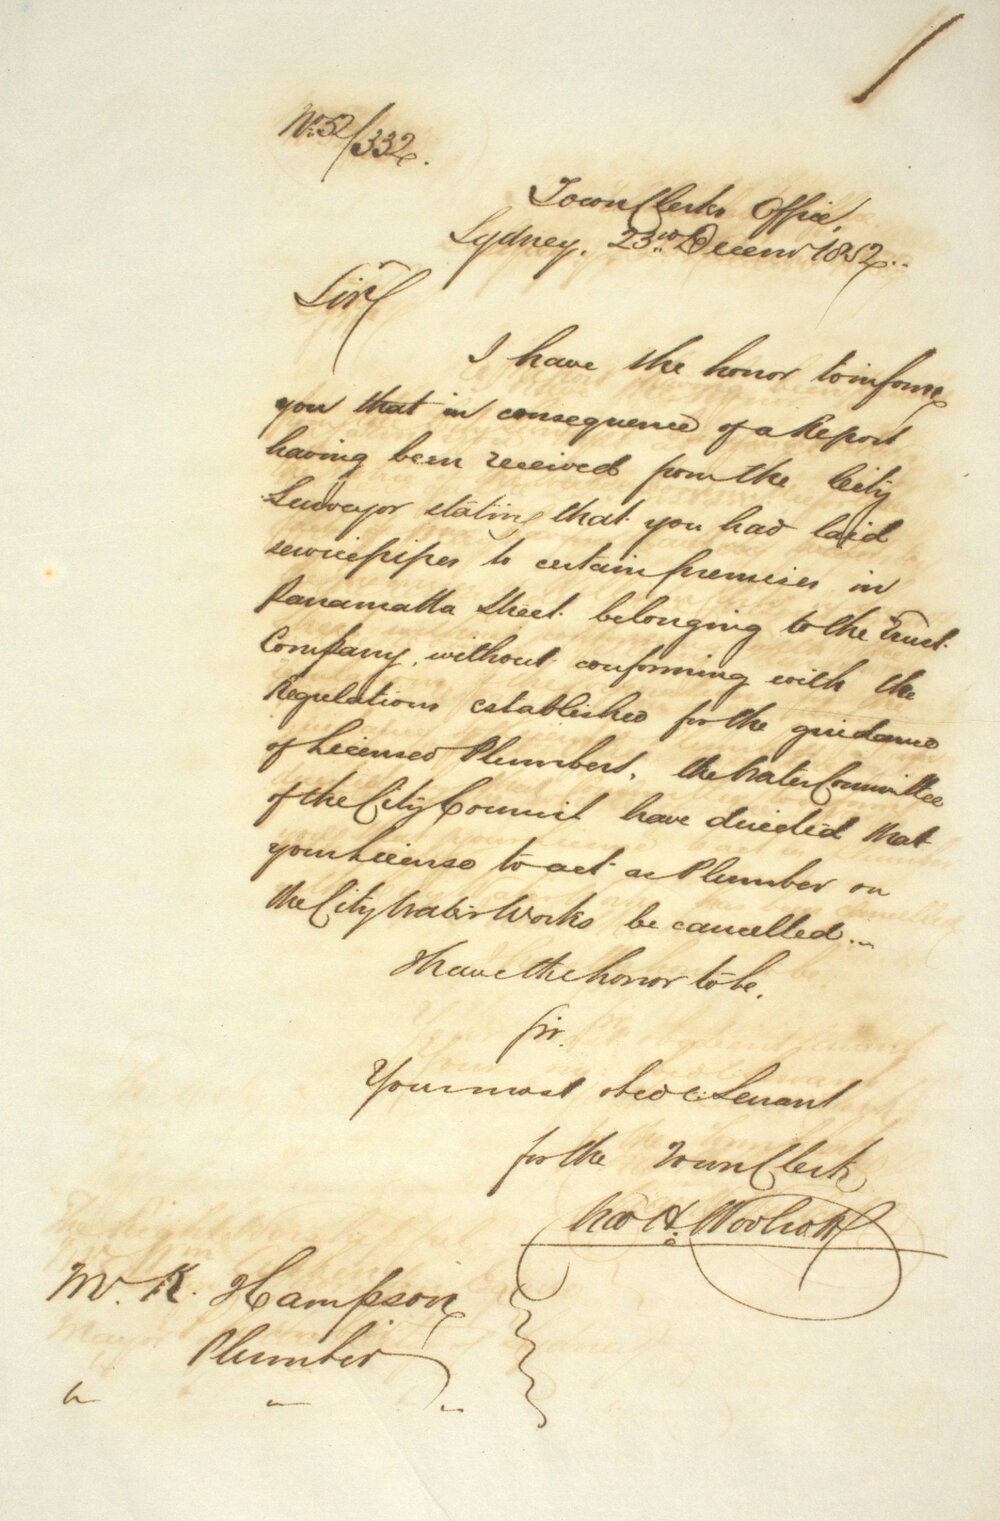 No. 52/332.
Town Clerks Office,
Sydney, 23rd Decemr 1852..
Sir
I have the honor to inform
you that in consequence of a Report
having been received from the City
Surveyor stating that you had laid
service pipes to certain premises in
Parramatta Street belonging to the Trust
Company, without conforming with the
Regulations established for the guidance
of Licensed Plumbers, the Water Committee
of the City Council have decided that
your License to act as Plumber on
the City Water Works be cancelled...
I have the honor to be,
Sir.
Your most obed. Servant
for the Town Clerk
Chas H. Woolcott
Mr. R. Hampson,
Plumber